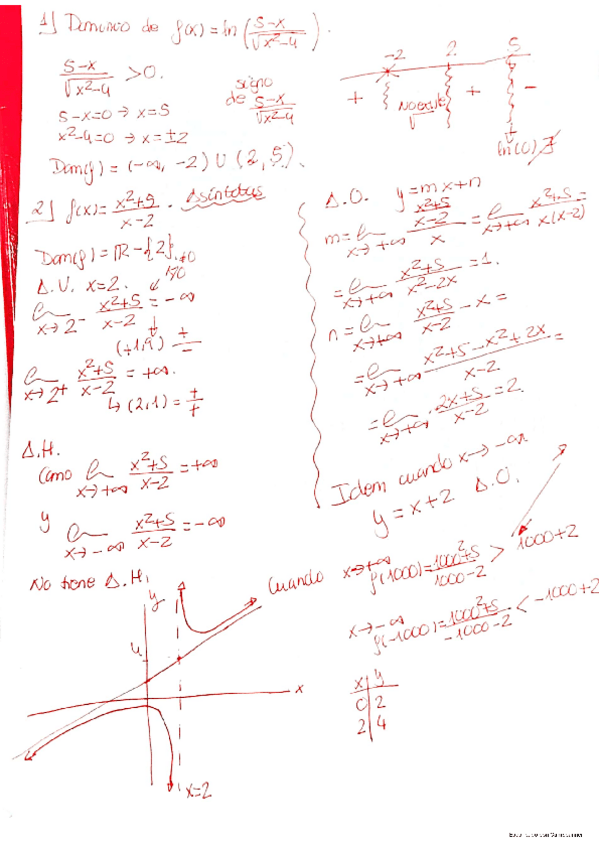 1) Dominio de f(x) = ln( (5-x)/√(x²-4) ).
(5-x)/√(x²-4) > 0.
5-x=0 → x=5
x²-4=0 → x=±2
signo de (5-x)/√(x²-4)
-2 2 5
+ No existe √ + -
ln(0) ∄
Dom(f) = (-∞, -2) ∪ (2, 5).
2) f(x) = (x²+5)/(x-2). Asíntotas
Dom(f) = ℝ - {2}.
A.V. x=2.
lim x→2⁻ (x²+5)/(x-2) = -∞
(+1,9) +/-
lim x→2⁺ (x²+5)/(x-2) = +∞.
↳ (2,1) = +/+
A.H.
Como lim x→+∞ (x²+5)/(x-2) = +∞
y lim x→-∞ (x²+5)/(x-2) = -∞
No tiene A.H.
A.O. y=mx+n
m = lim x→+∞ ((x²+5)/(x-2))/x = lim x→+∞ (x²+5)/(x(x-2)) =
= lim x→+∞ (x²+5)/(x²-2x) = 1.
n = lim x→+∞ (x²+5)/(x-2) - x =
= lim x→+∞ (x²+5-x²+2x)/(x-2) =
= lim x→+∞ (2x+5)/(x-2) = 2
Idem cuando x→-∞
y = x+2 A.O.
Cuando x→+∞
f(1000) = (1000²+5)/(1000-2) > 1000+2
x→-∞
f(-1000) = (1000²+5)/(-1000-2) < -1000+2
x y
0 2
2 4
y
4
x
x=2